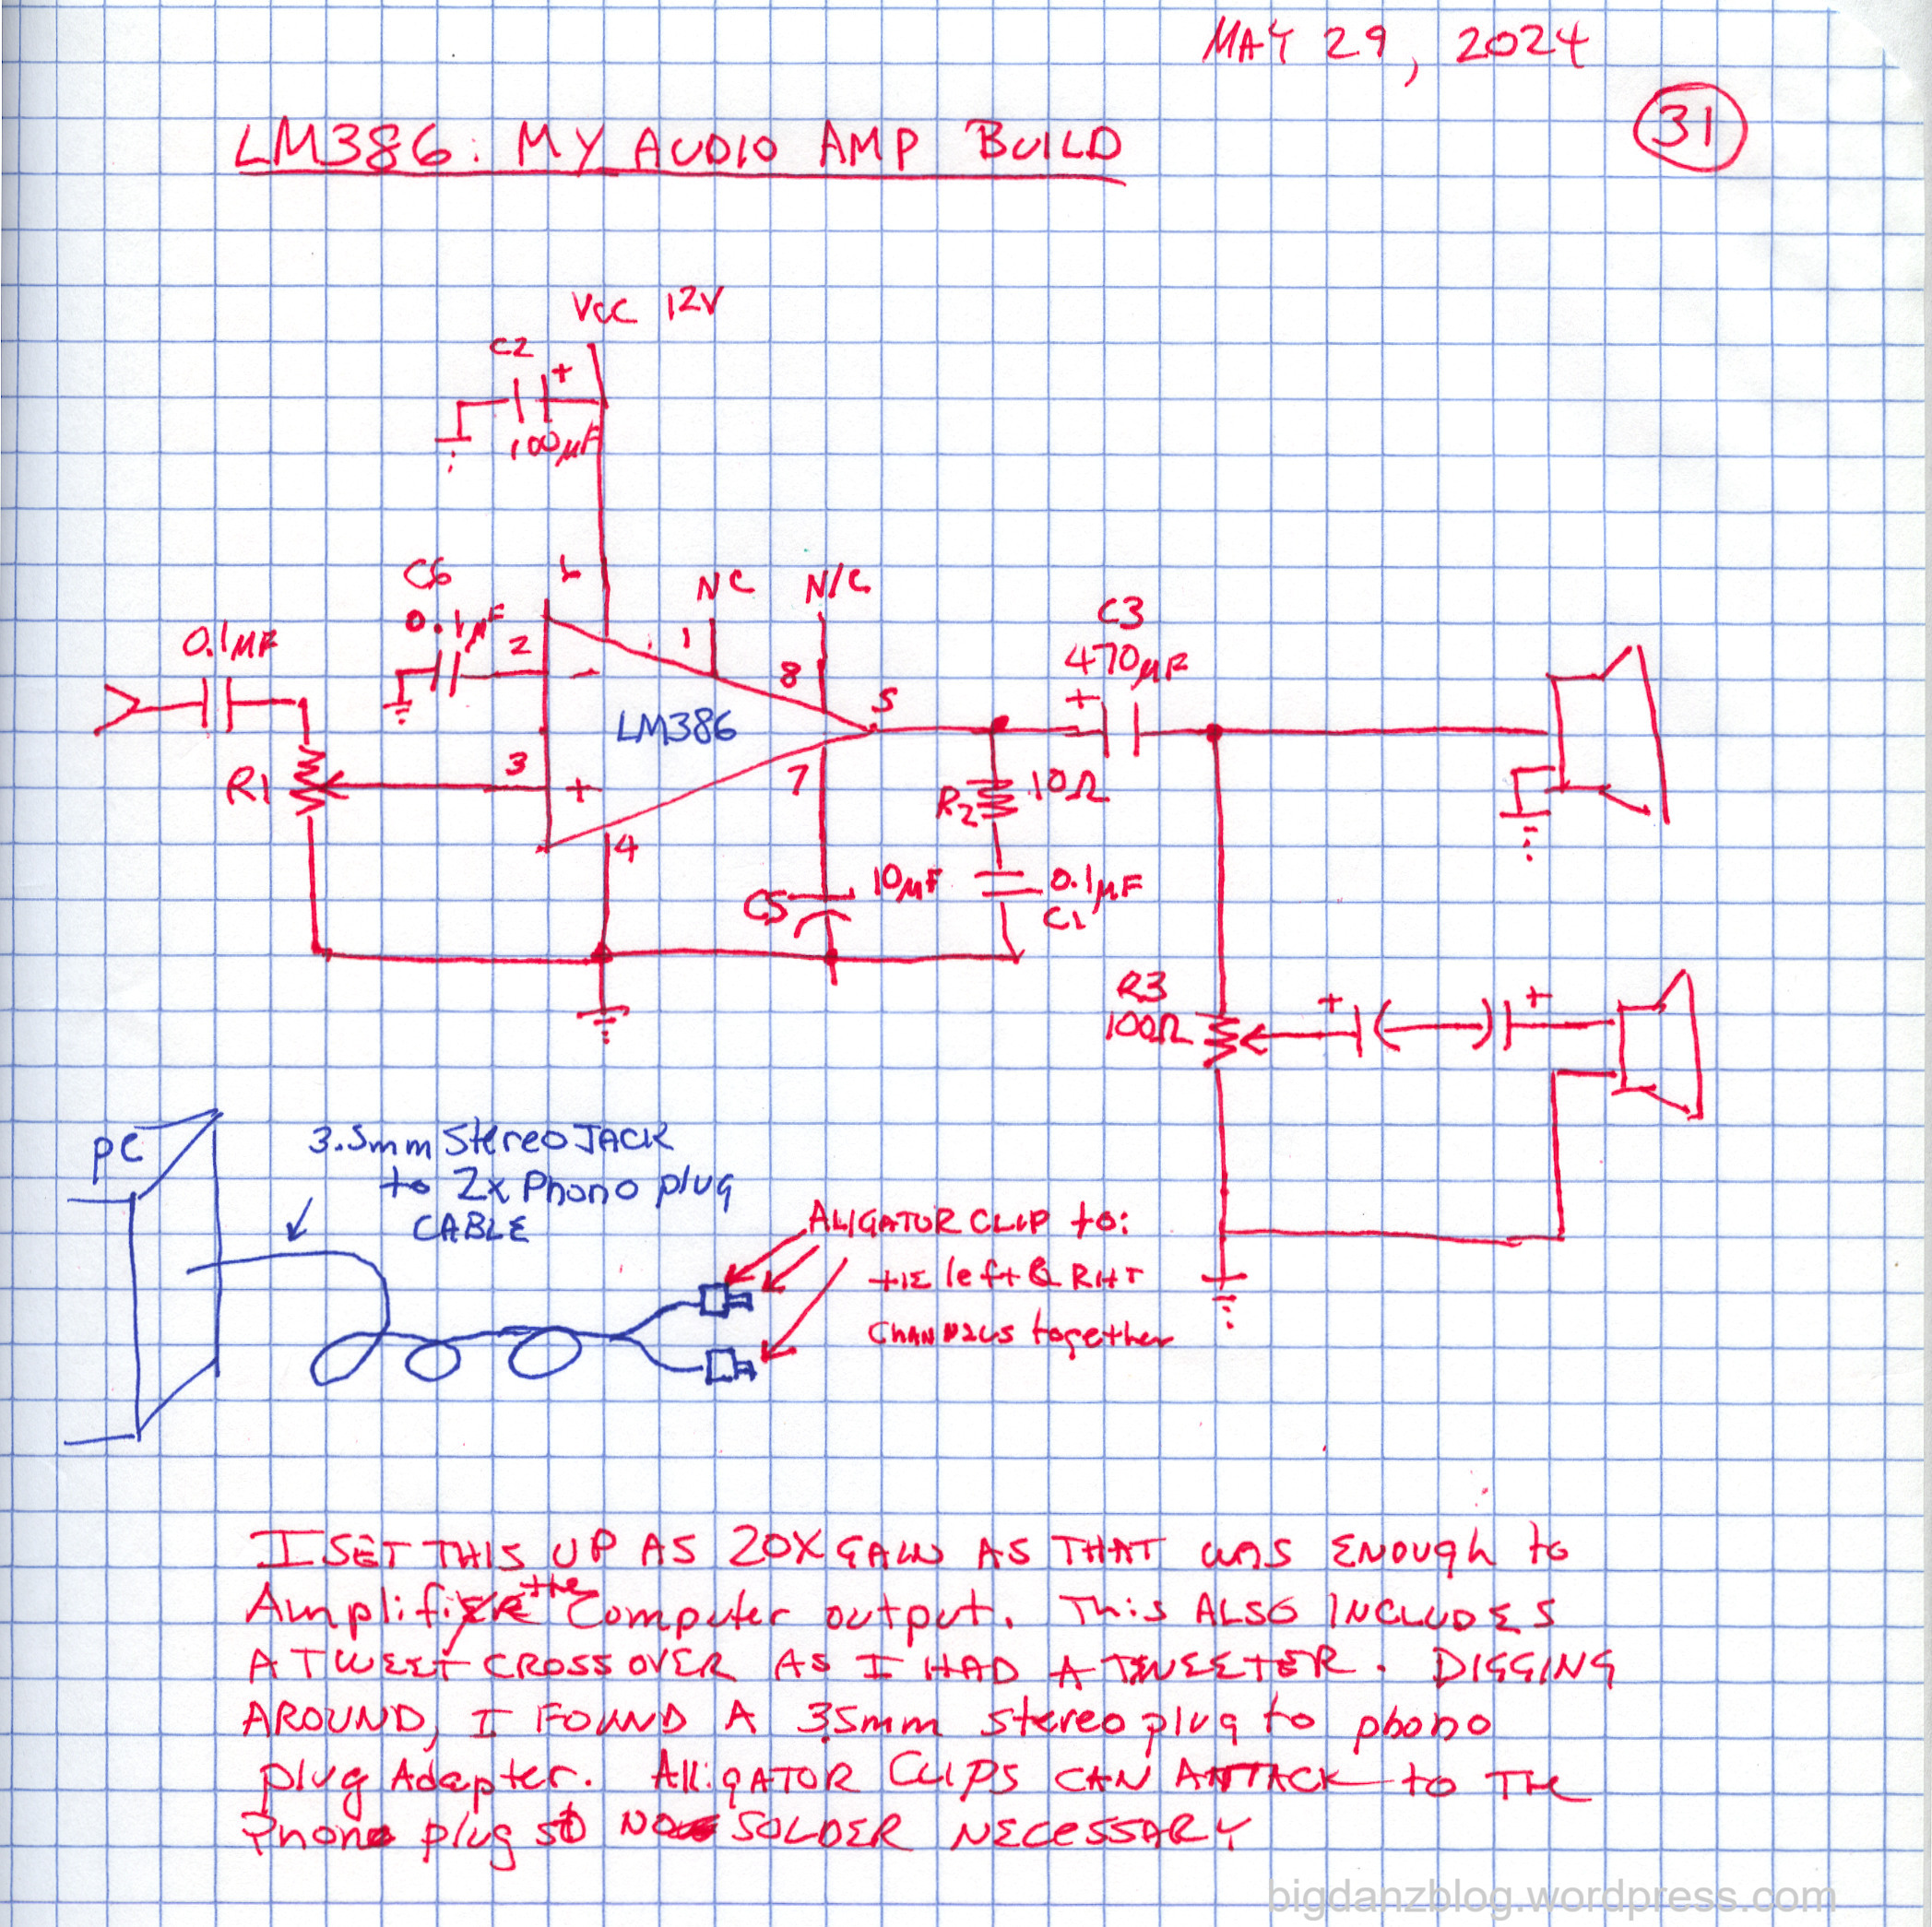 MAY 29, 2024
31
LM386: MY AUDIO AMP BUILD
VCC 12V
C2
+
100µF
C6
0.1µF
6
2
-
NC
N/C
1
8
0.1µF
LM386
5
C3
470µF
+
R1
3
+
7
4
R2
10Ω
C5
10µF
0.1µF
C1
R3
100Ω
+
+
PC
3.5mm Stereo JACK
to 2x Phono plug
CABLE
ALIGATOR CLIP to:
tIE left & RHT
CHANNELS together
I SET THIS UP AS 20X GAIN AS THAT WAS ENOUGH to
Amplify the Computer output. This ALSO INCLUDES
A TWEET CROSSOVER AS I HAD A TWEETER. DIGGING
AROUND, I FOUND A 3.5mm stereo plug to phono
plug Adapter. AlliGATOR CLIPS CAN ATTACK to THE
Phono plug so NO SOLDER NECESSARY
bigdanzblog.wordpress.com